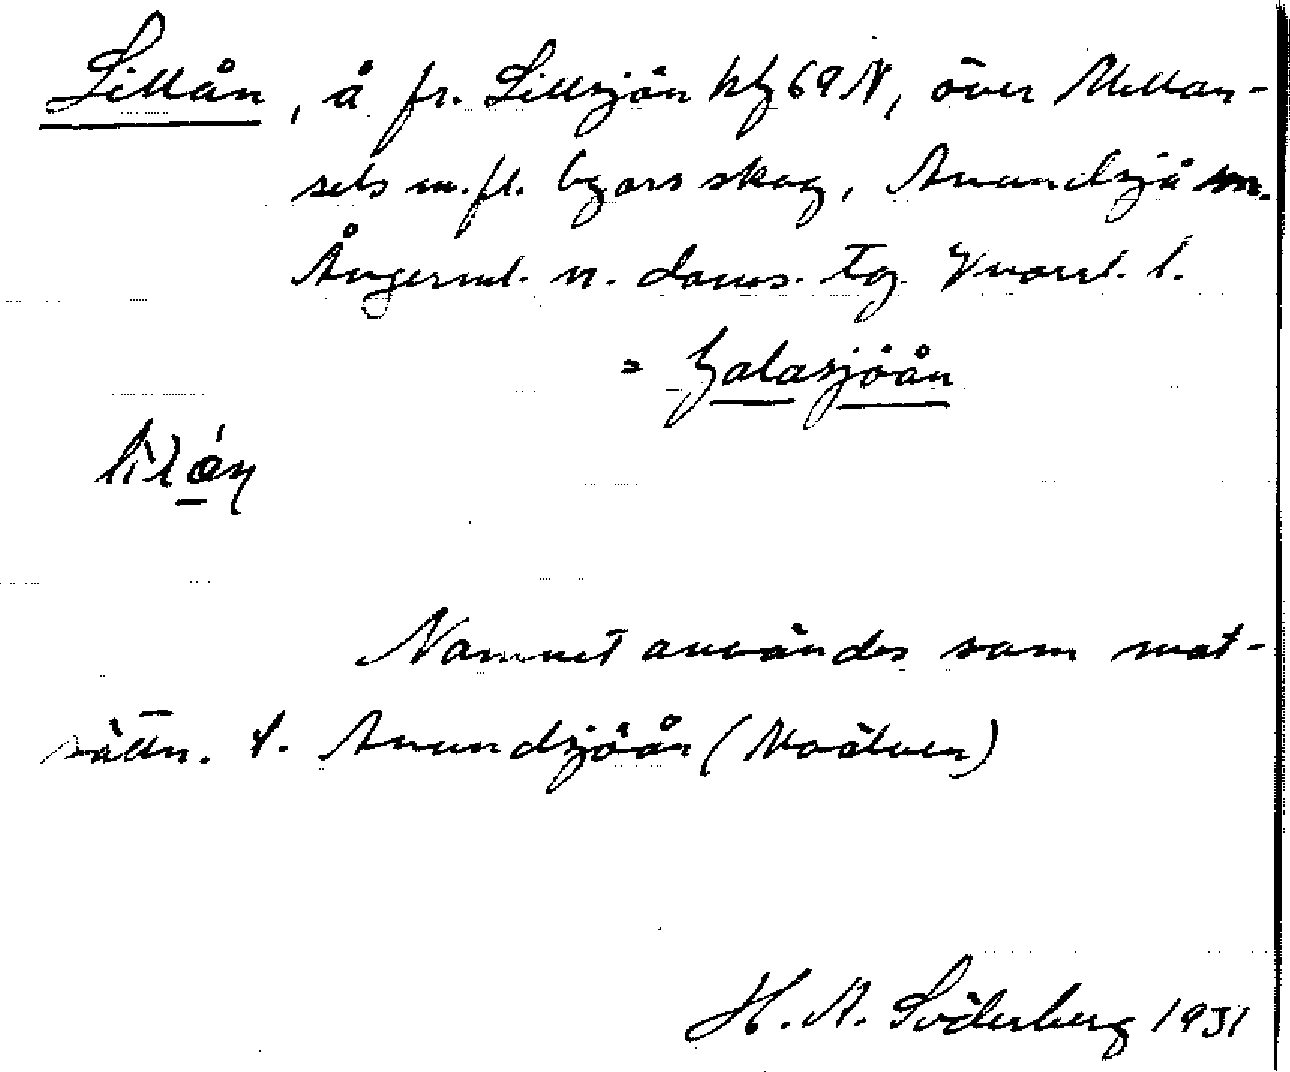 Lillån, å fr. Lillsjön hf 69 N, över Mellan-
sels m. fl. byars skog, Anundsjö sn.
Ångerml. n. doms. tg. Västernorrl. l.
= Galasjöån
Namnet användes som mot-
sättn. t. Anundsjöån (Moälven)
H. A. Söderberg 1931